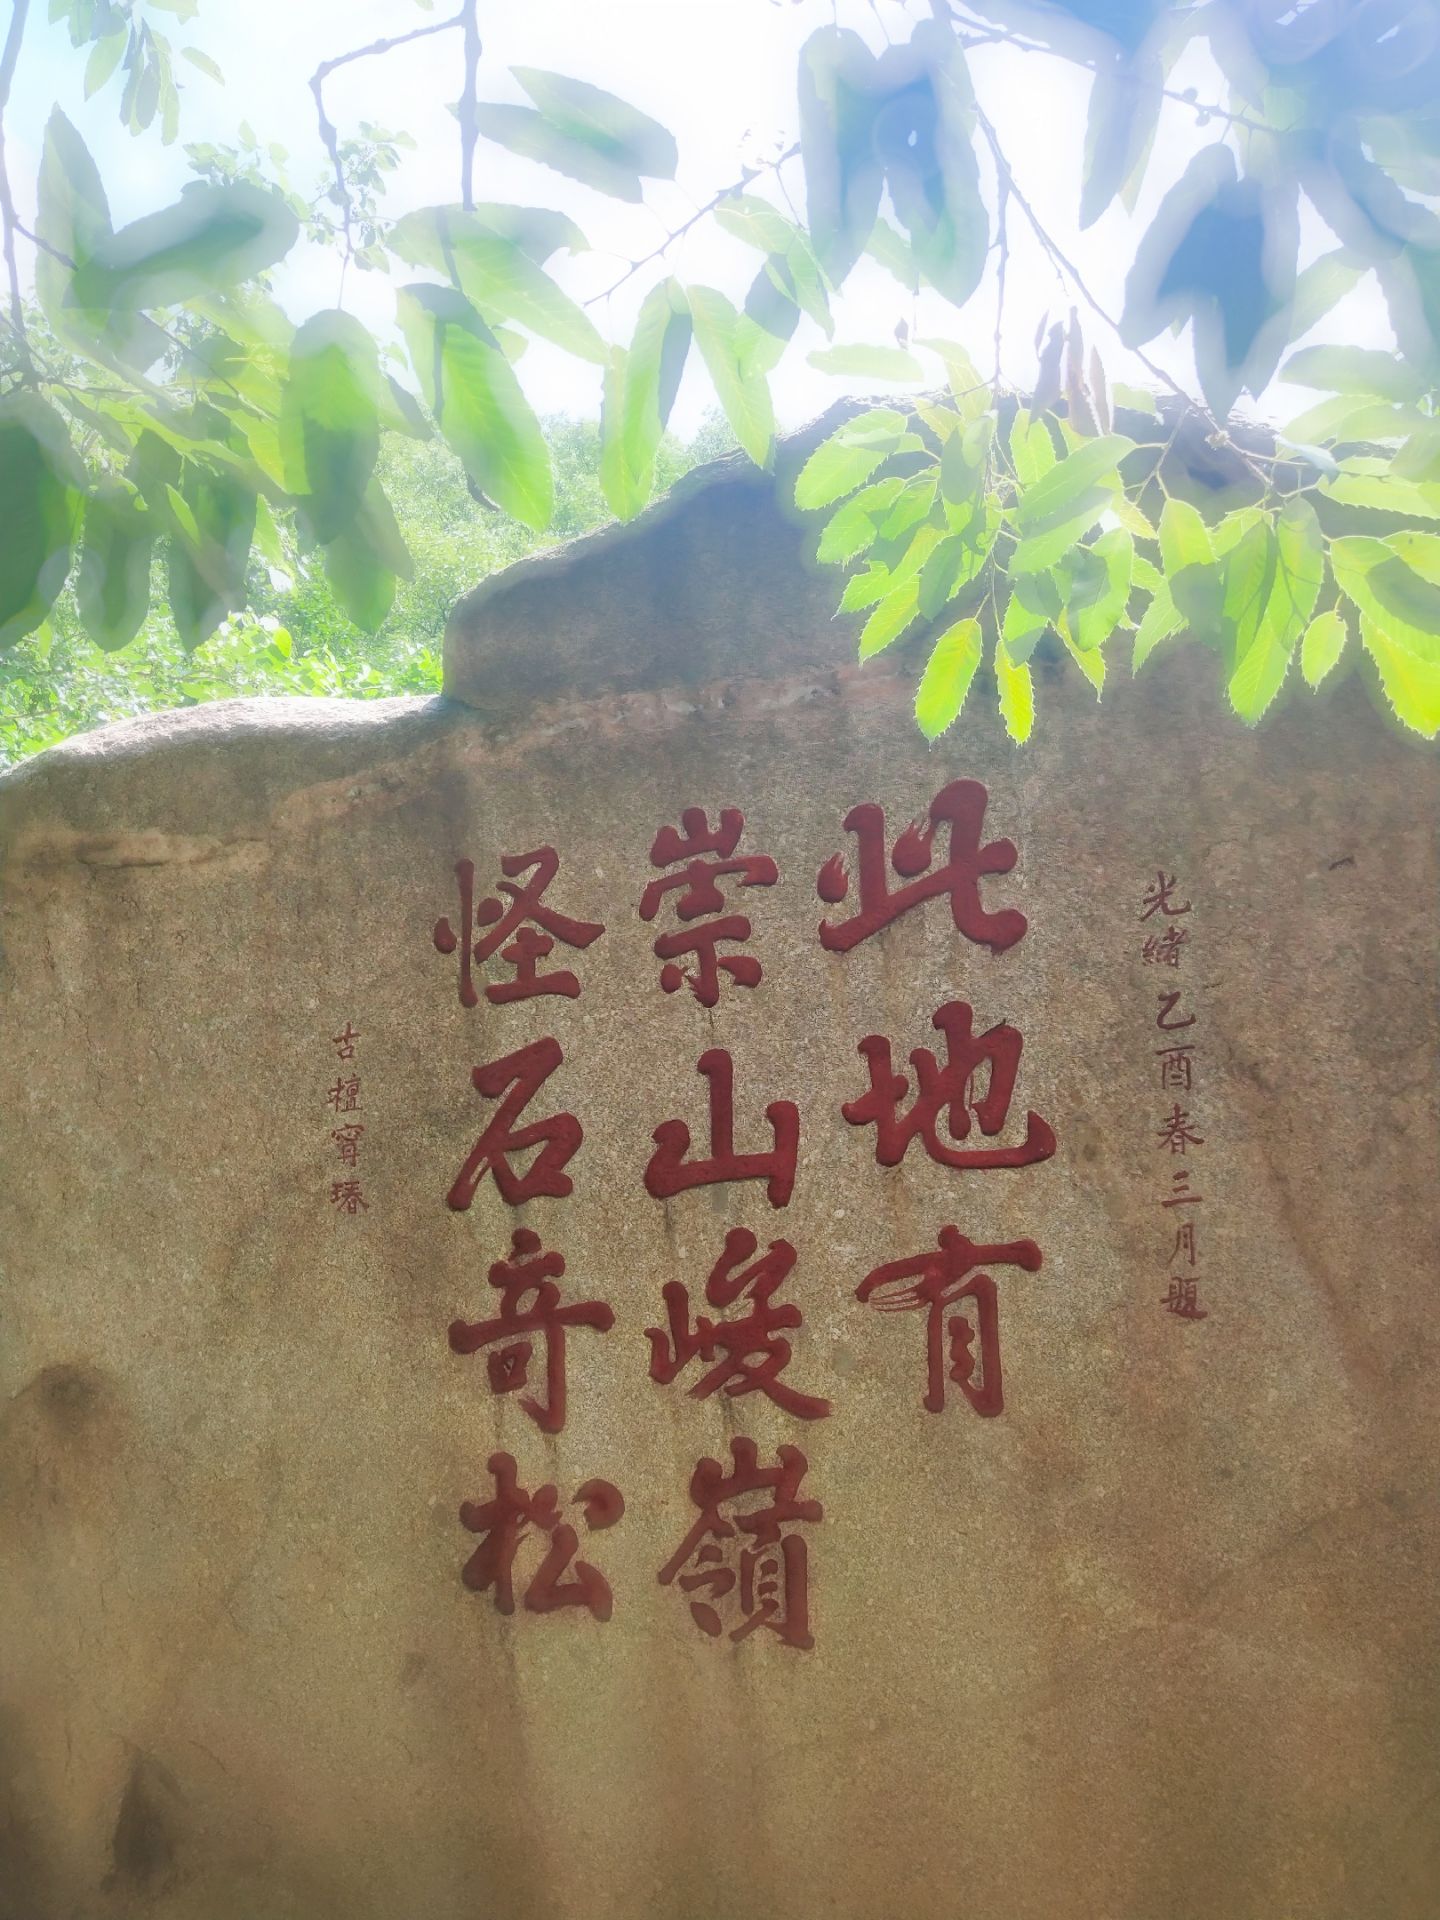 光緒乙酉春三月題
此地有
崇山峻嶺
怪石奇松
古檀甯瑃